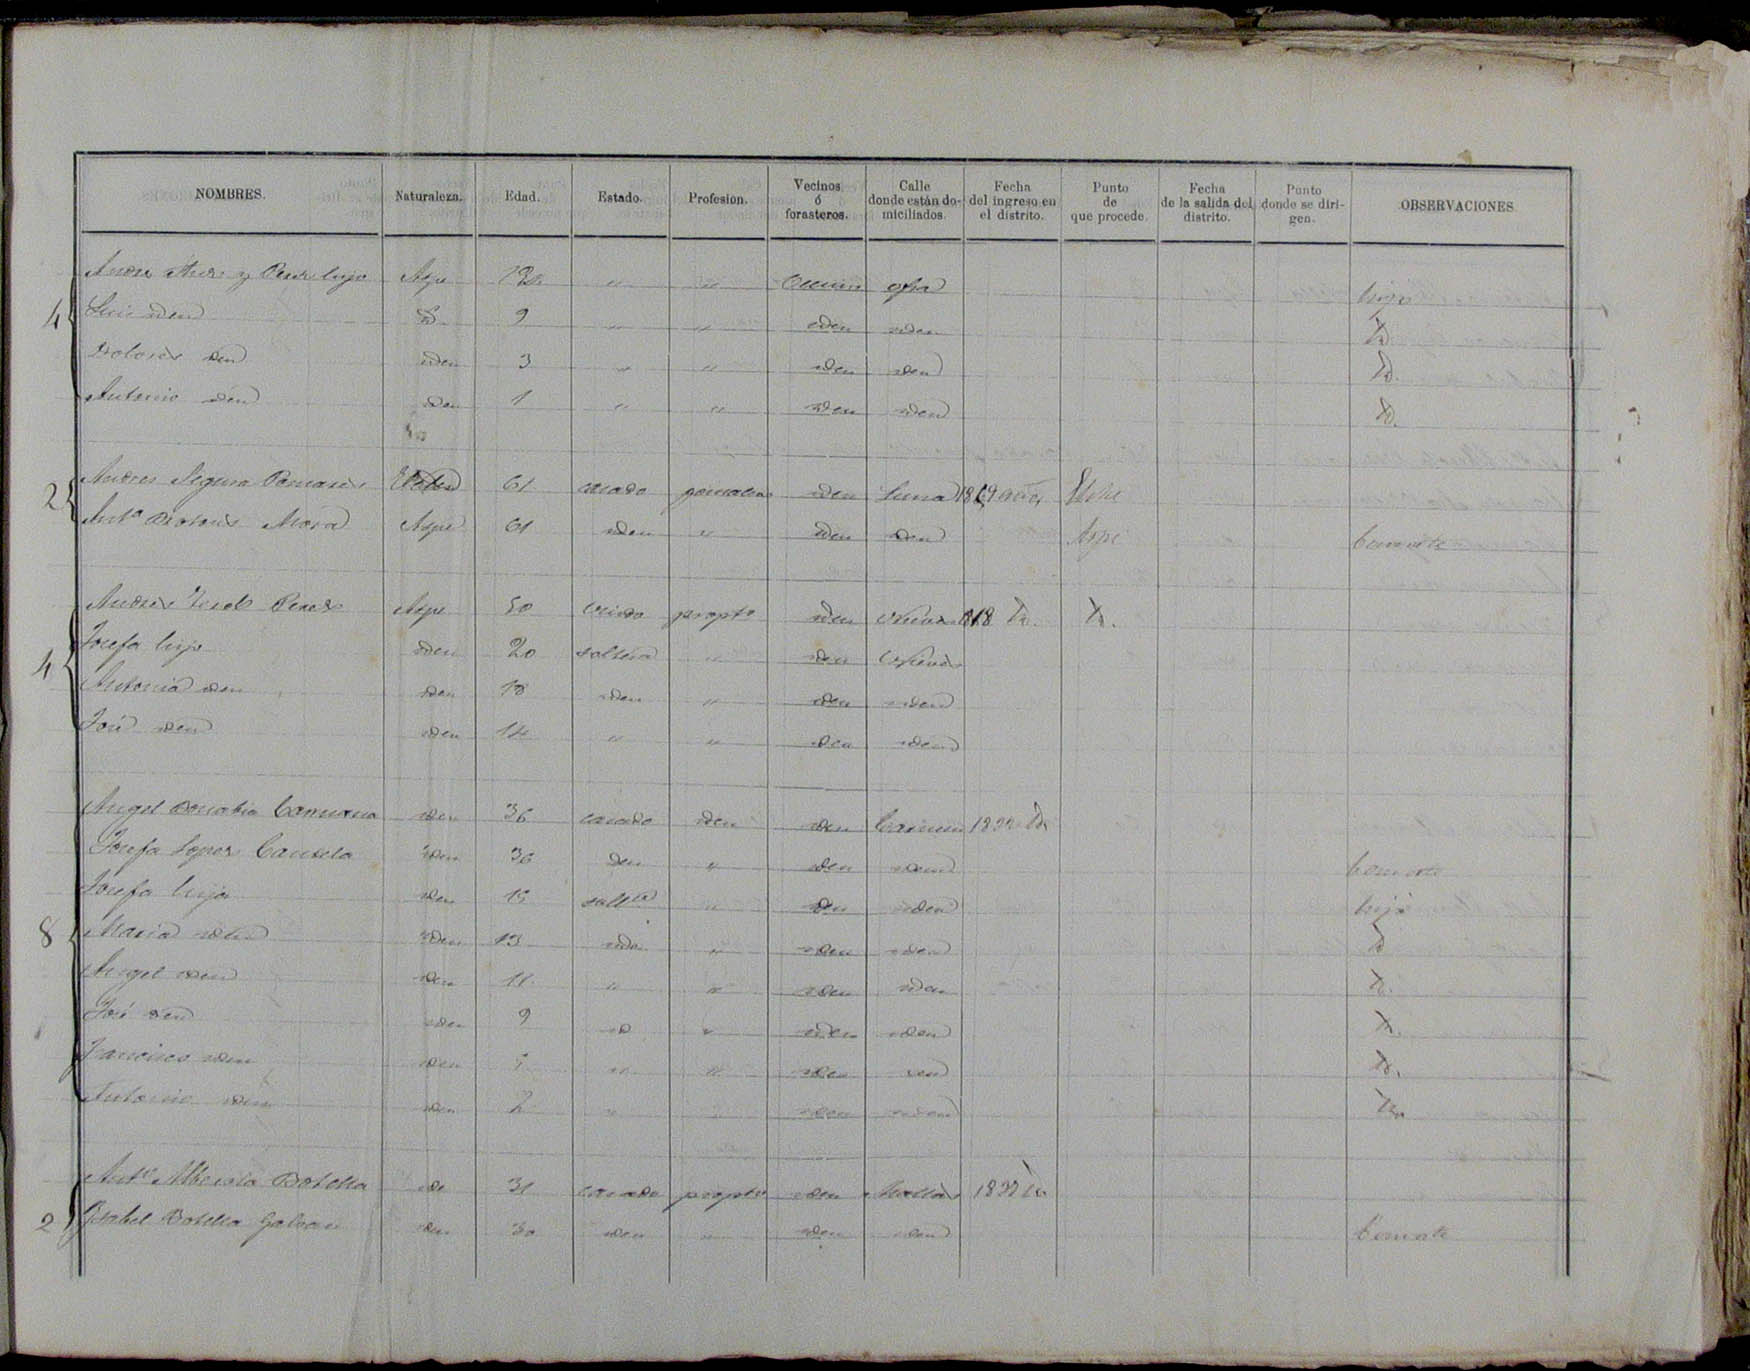 NOMBRES. Naturaleza. Edad. Estado. Profesion. Vecinos ó forasteros. Calle donde están domiciliados. Fecha del ingreso en el distrito. Punto de que procede. Fecha de la salida del distrito. Punto donde se dirigen. OBSERVACIONES
y Perez hijo Aspe " " hijo
4 Luis iden 9 " " iden iden id.
Dolores iden iden 3 " " iden iden id.
Antonio iden iden 1 " " iden iden id.
2 Andres Segura 61 casado iden Luna Elche
Antª Dolores Mora Aspe 61 iden " iden iden Aspe Consorte
Andres Perez Aspe 50 viudo propto iden id.
4 Josefa hija iden 20 soltera " iden
Antonia iden iden 18 iden " iden iden
José iden iden 14 " " iden iden
Angel iden 36 casado iden iden Carmen id
Josefa Lopez Candela iden 36 iden " iden iden Consorte
Josefa hija iden 15 soltª " iden iden hija
8 Maria iden iden 13 iden " iden iden id
Angel iden iden 11 " " iden iden id.
José iden iden 9 " iden iden id.
Francisco iden iden 5 " " iden iden id.
Antonio iden iden 2 " " iden iden id.
Antº Alberola Botella iden 31 casado propto iden id
2 Isabel Botella Galvan iden 30 iden " iden iden Consorte